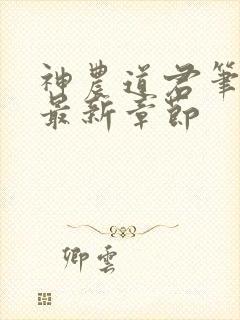 神農道君筆
最新章節
卿雲